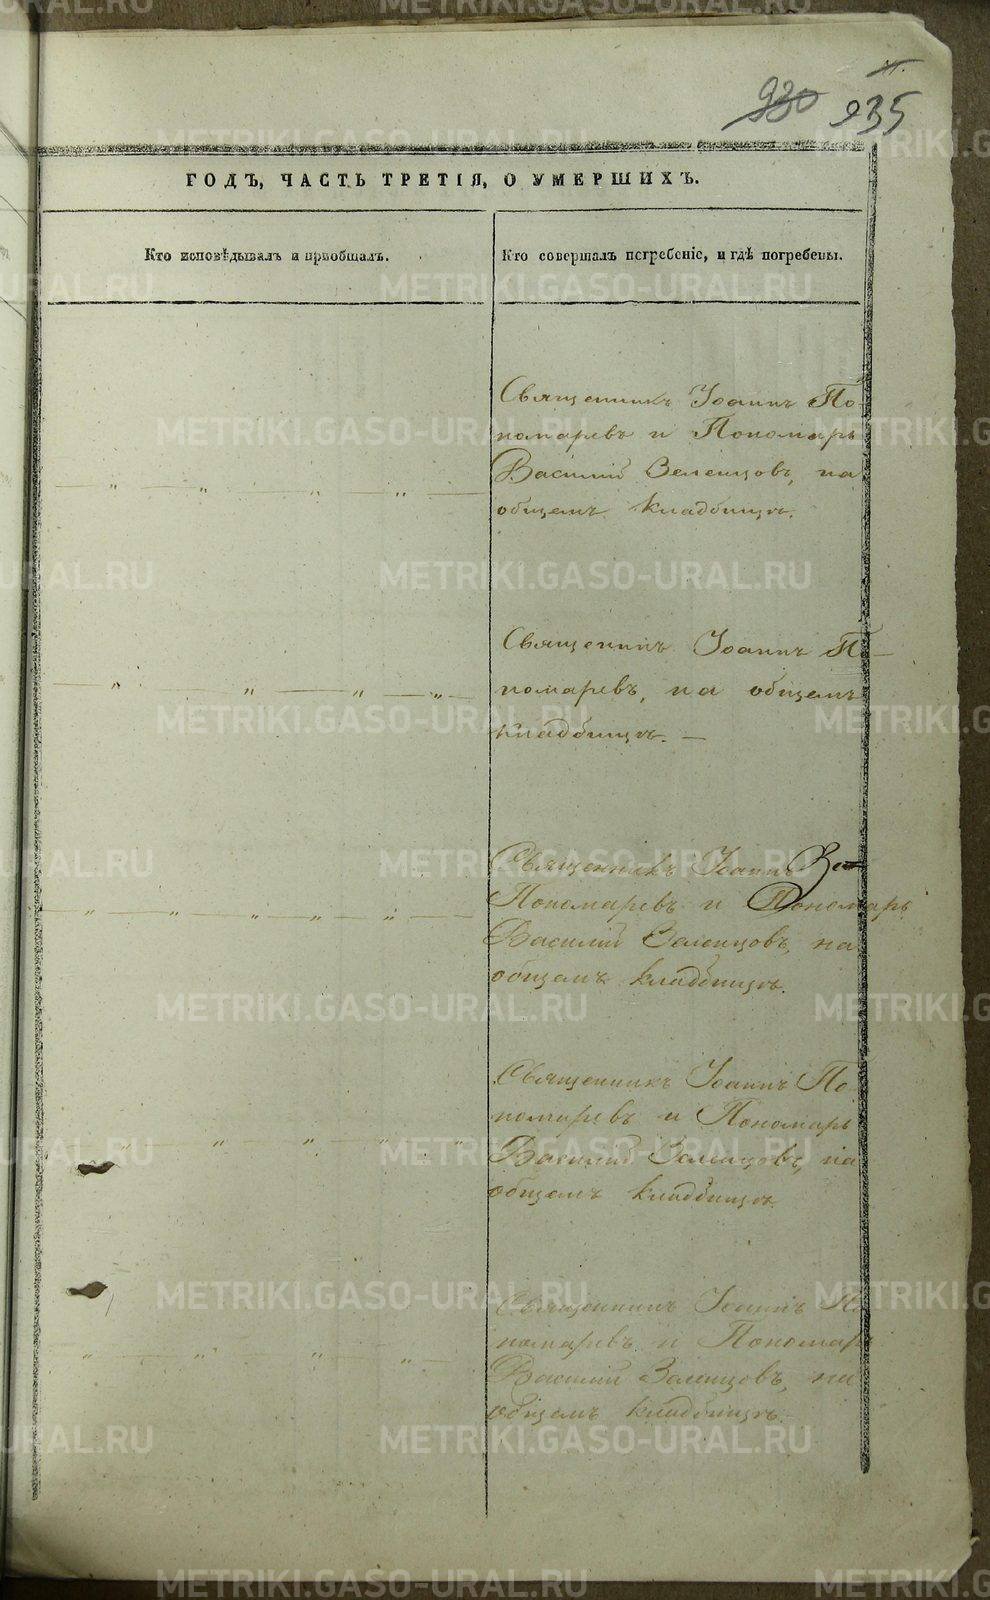 930 935
ГОДЪ, ЧАСТЬ ТРЕТІЯ, О УМЕРШИХЪ.
Кто исповѣдывалъ и пріобщалъ.
Кто совершалъ погребеніе, и гдѣ погребены.
Священникъ Іоаннъ По-
номаревъ и Пономарь
Василій Зеленцовъ, на
общемъ кладбищѣ.
Священникъ Іоаннъ По-
номаревъ, на общемъ
кладбищѣ. —
Священникъ Іоаннъ
Пономаревъ и Пономарь
Василій Зеленцовъ, на
общемъ кладбищѣ.
Священникъ Іоаннъ По-
номаревъ и Пономарь
Василій Зеленцовъ, на
общемъ кладбищѣ
Священникъ Іоаннъ По-
номаревъ и Пономарь
Василій Зеленцовъ, на
общемъ кладбищѣ.
METRIKI.GASO-URAL.RU